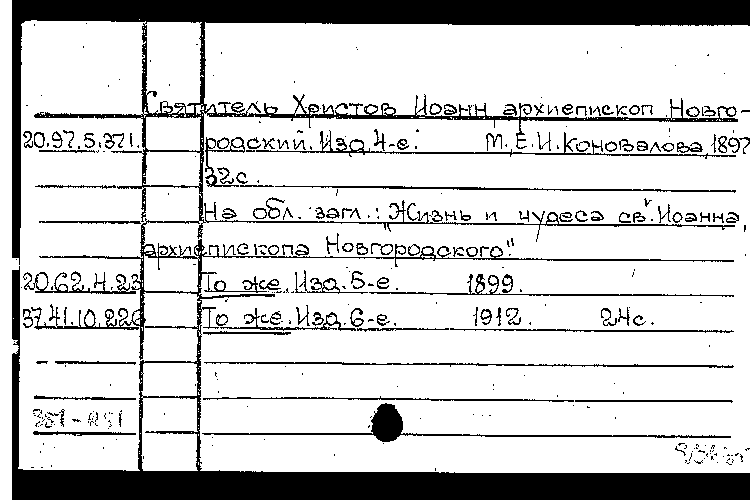 Святитель Христов Иоанн, архиепископ Новго-
20.97.5.371. родский. Изд. 4-е. М., Е.И. Коновалова, 1897
32с.
На обл. загл.: "Жизнь и чудеса св. Иоанна,
архиепископа Новгородского."
20.62.4.23 То же. Изд. 5-е. 1899.
37.41.10.226 То же. Изд. 6-е. 1912. 24с.